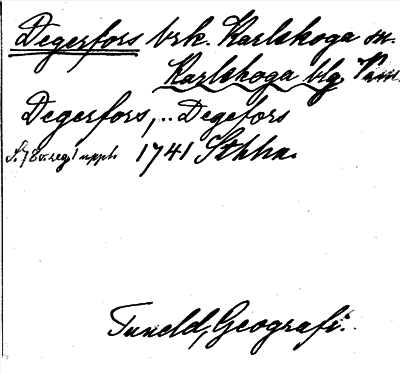 Degerfors brk. Karlskoga sn.
Karlskoga blg. Värm.
Degerfors, .. Degefors
S. 78 o. reg. 1 uppl. 1741 Sthlm.
Tuneld, Geografi.